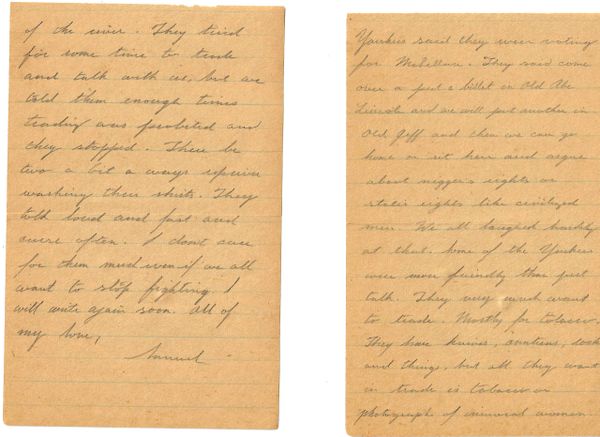 of the river. They tried
for some time to trade
and talk with us, but we
told them enough times
trading was forebited and
they stopped. There be
two a bit a ways upriver
washing their shirts. They
talk loud and fast and
swere often. I dont care
for them much even if we all
want to stop fighting. I
will write again soon. All of
my love,
Samuel
Yankees said they were voting
for McLellan. They said come
over a put a billet in Old Abe
Lincoln and we will put another in
Old Jeff and then we can go
home or sit here and argue
about nigger's rights or
state rights like civilized
men. We all laughed hardily
at that. Some of the Yankees
were more friendly than just
talk. They very much want
to trade. Mostly for tobacco.
They have knives,
and things, but all they want
in trade is tobacco or
photograph of immoral women